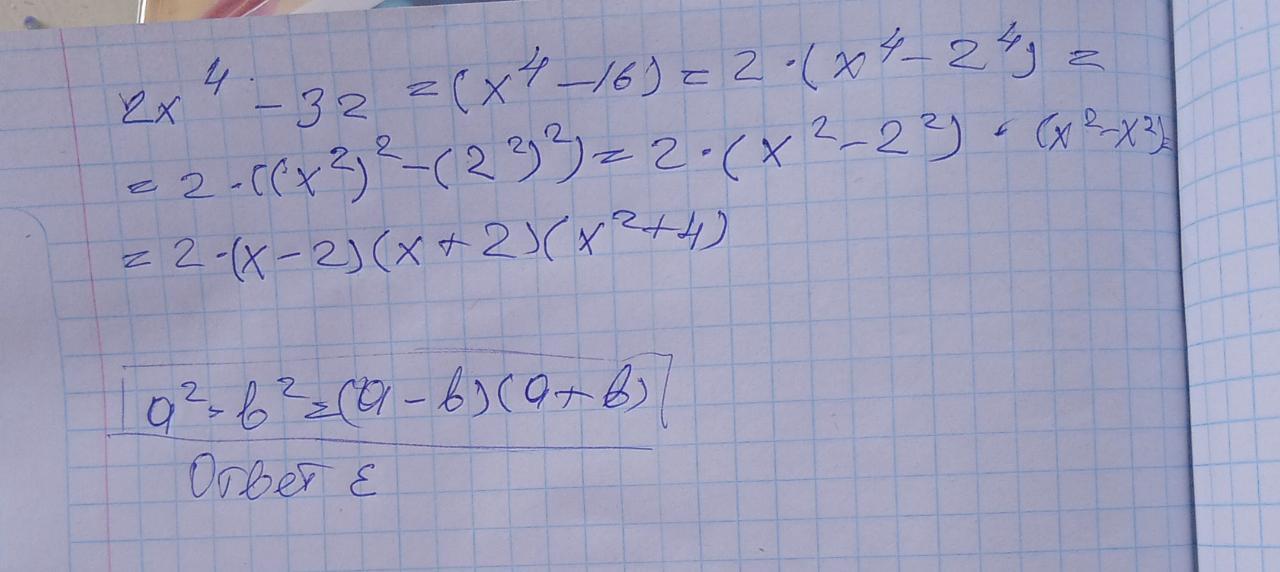 2x⁴ - 32 = (x⁴ - 16) = 2 · (x⁴ - 2⁴) =
= 2 · ((x²)² - (2²)²) = 2 · (x² - 2²) · (x² - x²) =
= 2 · (x - 2)(x + 2)(x² + 4)
a² - b² = (a - b)(a + b)
Ответ ε